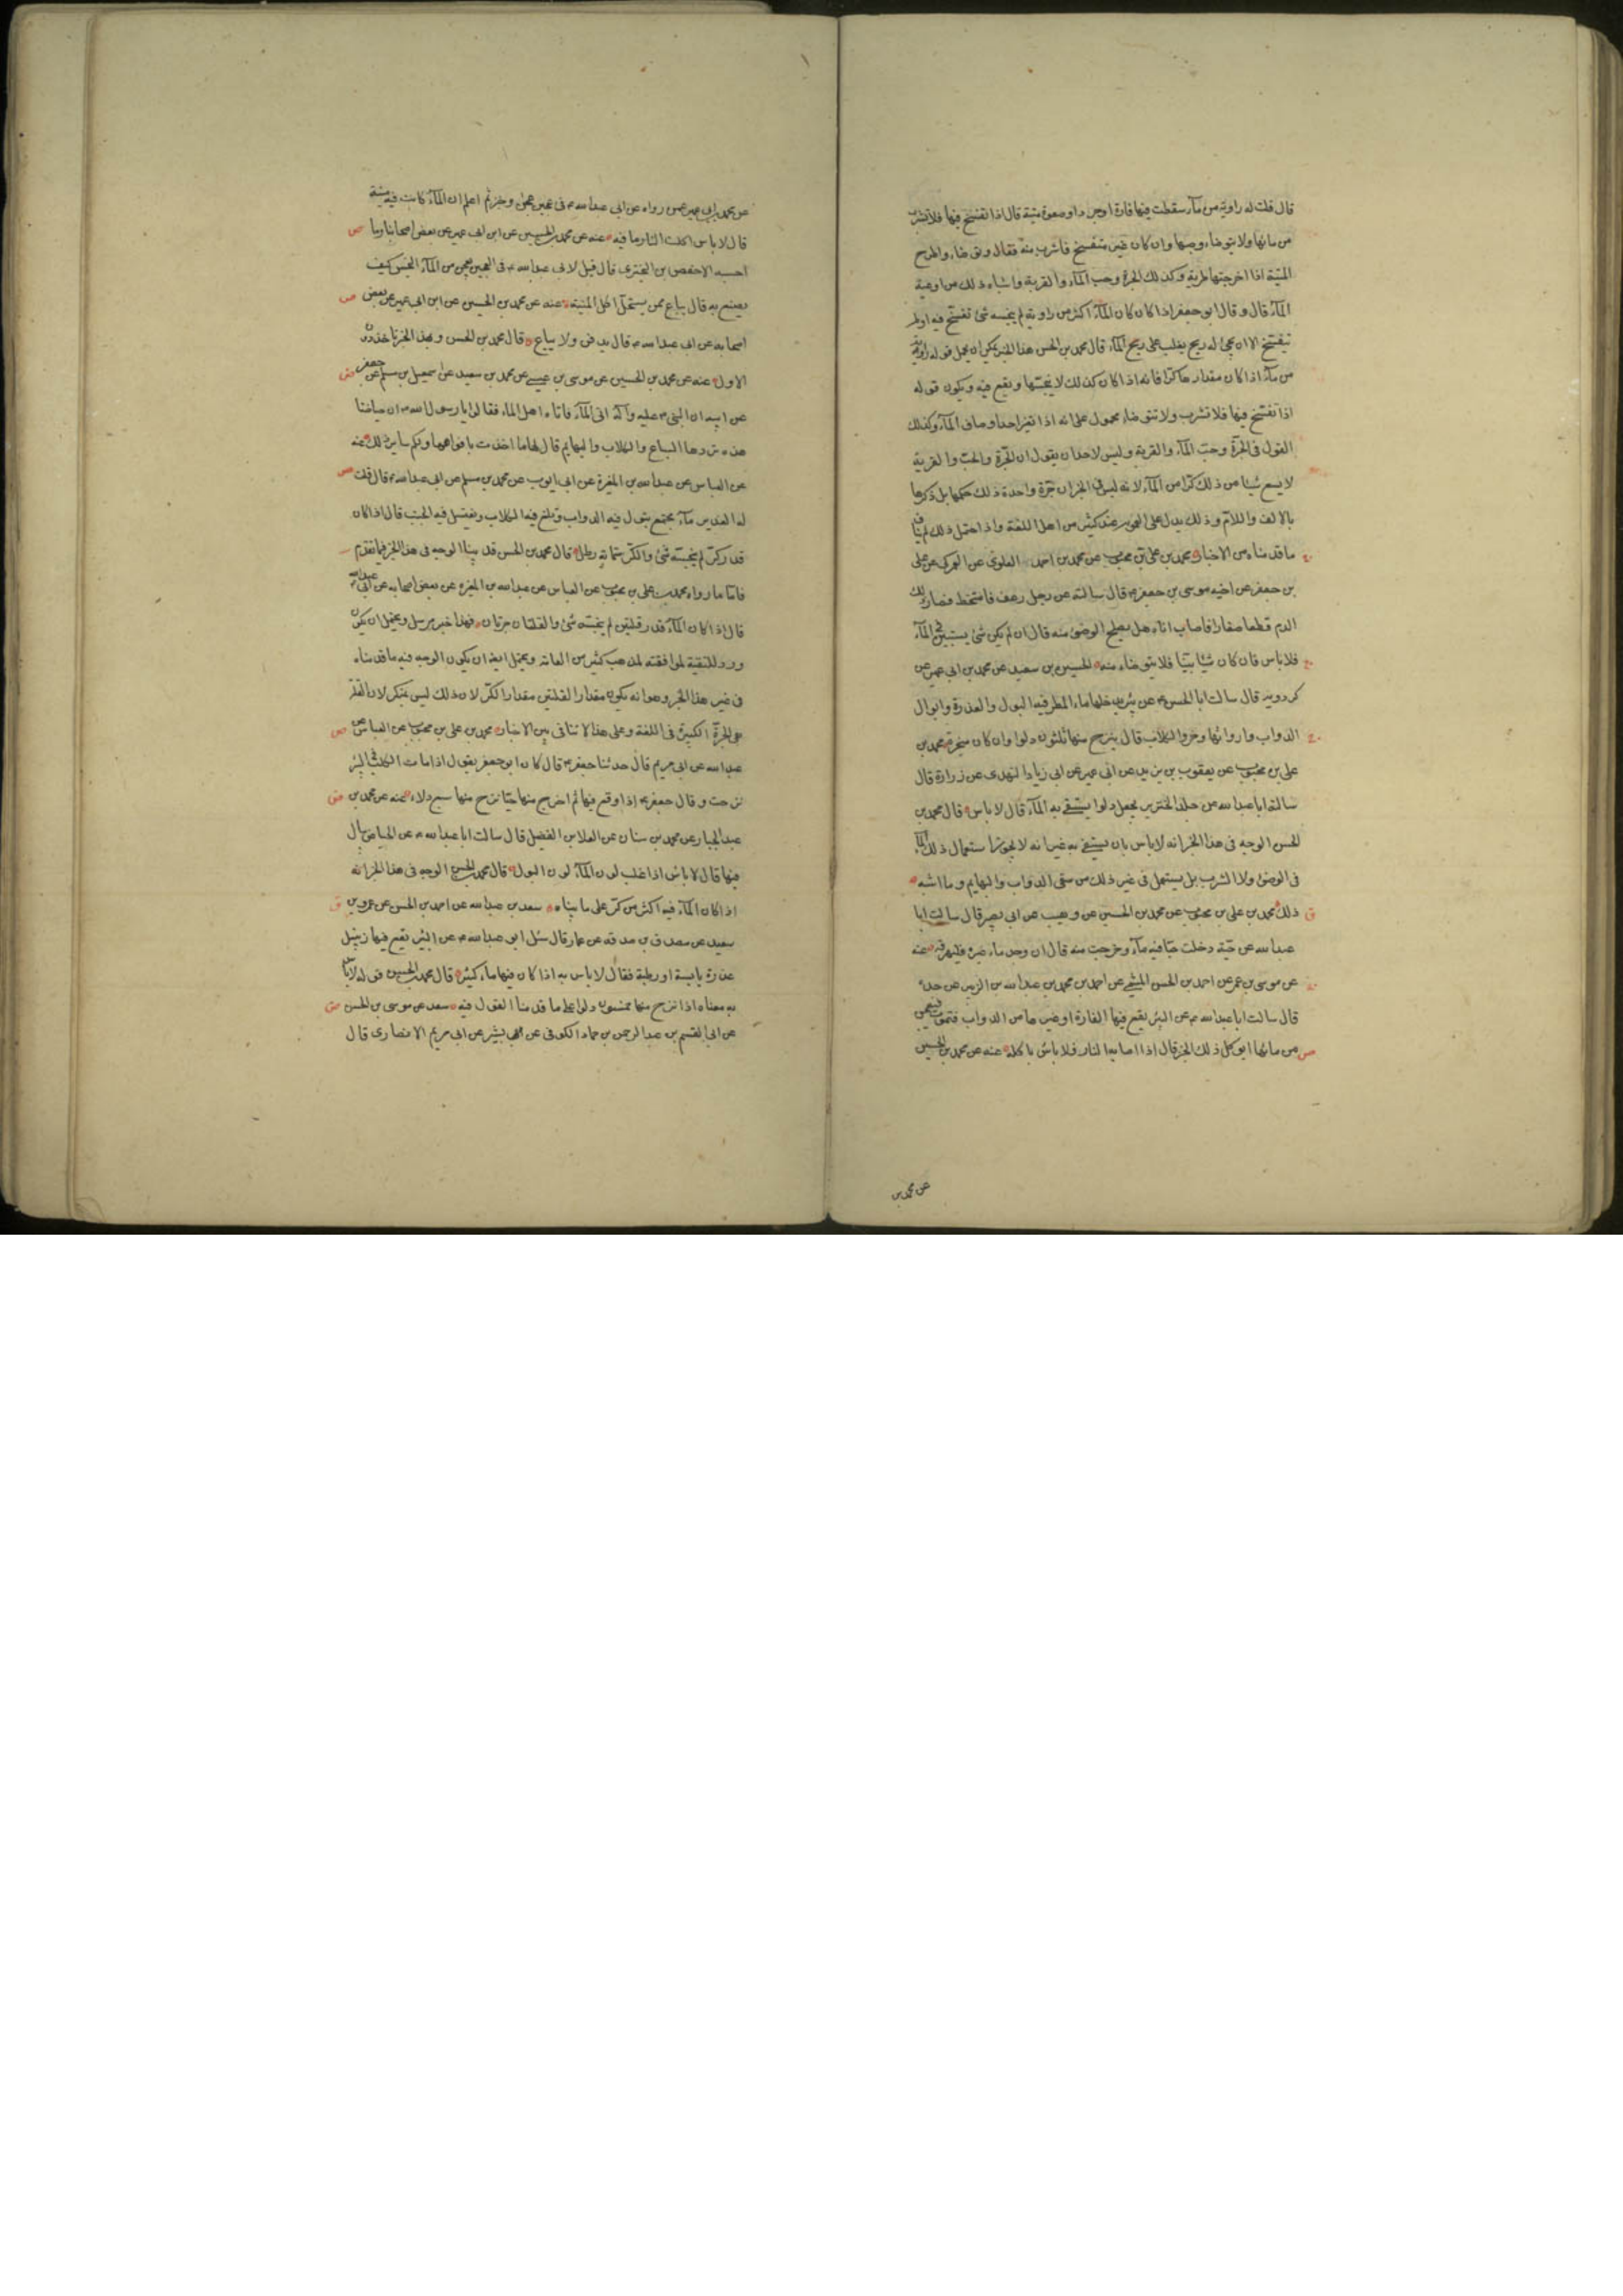 قال قلت له راوية من ماء سقطت فيها فارة او جرذ او صعوة ميتة قال اذا تفسخ فيها فلا تشرب
من مائها ولا يتوضاء وصبها وان كان غير متفسخ فاشرب منه فقال وتوضاء واطرح
الميتة اذا اخرجتها طرية وكذلك الجرة وحب الماء والقربة واشباه ذلك من اوعية
الماء قال وقال ابو جعفر اذا كان كان الماء اكثر من راوية لم ينجسه شئ تفسخ فيه او لم
يتفسخ الا ان يجئ له ريح يغلب على ريح الماء قال محمد بن الحسن هذا الخبر يمكن ان يحمل قوله راوية
من ماء اذا كان مقدارها كرا فانه اذا كان كذلك لا ينجسها ويقع فيه ويكون قوله
اذا تفسخ فيها فلا تشرب ولا تتوضاء محمول على انه اذا تغير احد اوصاف الماء وكذلك
القول في الجرة وحب الماء والقربة وليس لاحد ان يقول ان الجرة والحب والقربة
لا يسع شيئا من ذلك كرا من الماء لانه ليس في الخبر ان جرة واحدة ذلك حكمها بل ذكرها
بالالف واللام وذلك يدل على العموم عند كثير من اهل اللغة واذا احتمل ذلك لم يناف
ما قدمناه من الاخبار محمد بن علي بن محبوب عن محمد بن احمد العلوي عن العمركي عن علي
بن جعفر عن اخيه موسى بن جعفر قال سالته عن رجل رعف فامتخط فصار ذلك
الدم قطعا صغارا فاصاب اناءه هل يصلح الوضوء منه قال ان لم يكن شئ يستبين في الماء
فلا باس فان كان شيئا بينا فلا يتوضاء منه الحسين بن سعيد عن محمد بن ابي عمير عن
كردويه قال سالت ابا الحسن عن بئر يدخلها ماء المطر فيه البول والعذرة وابوال
الدواب وارواثها وخرء الكلاب قال ينزح منها ثلثون دلوا وان كان مبخرة محمد بن
علي بن محبوب عن يعقوب بن يزيد عن ابن ابي عمير عن ابي زياد النهدي عن زرارة قال
سالت ابا عبد الله عن جلد الخنزير يجعل دلوا يستقى به الماء قال لا باس قال محمد بن
الحسن الوجه في هذا الخبر انه لا باس بان يستقى به غير انه لا يجوز استعمال ذلك الماء
في الوضوء ولا الشرب بل يستعمل في غير ذلك من سقى الدواب والبهايم وما اشبه
ذلك محمد بن علي بن محبوب عن محمد بن الحسين عن وهيب عن ابي بصير قال سالت ابا
عبد الله عن حية دخلت حبا فيه ماء وخرجت منه قال ان وجد ماء غيره فليهرقه عنه
عن موسى بن عمر عن احمد بن الحسن الميثمي عن احمد بن محمد بن عبد الله بن الزبير عن جده
قال سالت ابا عبد الله عن البئر يقع فيها الفارة او غيرها من الدواب فتموت فيعجن
من مائها ايوكل ذلك الخبز قال اذا اصابها النار فلا باس باكله عنه عن محمد بن الحسين
عن محمد بن
عن محمد بن ابي عمير عمن رواه عن ابي عبد الله في عجين عجن وخبز ثم اعلم ان الماء كانت فيه ميتة
قال لا باس اكلت النار ما فيه عنه عن محمد بن الحسين عن ابن ابي عمير عن بعض اصحابنا وما
احسبه الا حفص بن البختري قال قيل لابي عبد الله في العجين يعجن من الماء النجس كيف
يصنع به قال يباع ممن يستحل اكل الميتة عنه عن محمد بن الحسين عن ابن ابي عمير عن بعض
اصحابه عن ابي عبد الله قال يدفن ولا يباع قال محمد بن الحسن وبهذا الخبر ناخذ دون
الاول عنه عن محمد بن الحسين عن موسى بن عيسى عن محمد بن سعيد عن اسمعيل بن مسلم عن جعفر
عن ابيه ان النبي عليه وآله اتى الماء فاتاه اهل الماء فقالوا يا رسول الله ان حياضنا
هذه تردها السباع والكلاب والبهايم قال لها ما اخذت بافواهها ولكم ساير ذلك عنه
عن العباس عن عبد الله بن المغيرة عن ابي ايوب عن محمد بن مسلم عن ابي عبد الله قال قلت
له الغدير ماء مجتمع تبول فيه الدواب وتلغ فيه الكلاب ويغتسل فيه الجنب قال اذا كان
قدر كر لم ينجسه شئ والكر ستمائة رطل قال محمد بن الحسن قد بينا الوجه في هذا الخبر فيما تقدم
فاما ما رواه محمد بن علي بن محبوب عن العباس عن عبد الله بن المغيرة عن بعض اصحابه عن ابي عبد الله
قال اذا كان الماء قدر قلتين لم ينجسه شئ والقلتان جرتان فهذا خبر مرسل ويحتمل ان يكون
ورد للتقية لموافقته لمذهب كثير من العامة ويحتمل ايضا ان يكون الوجه فيه ما قدمناه
في غير هذا الخبر وهو انه يكون مقدار القلتين مقدار الكر لان ذلك ليس بمنكر لان القلة
هي الجرة الكبيرة في اللغة وعلى هذا لا تنافي بين الاخبار محمد بن علي بن محبوب عن العباس عن
عبد الله عن ابي مريم قال حدثنا جعفر قال كان ابو جعفر يقول اذا مات الكلب في البئر
نزحت وقال جعفر اذا وقع فيها ثم اخرج منها حيا نزح منها سبع دلاء عنه عن محمد بن
عبد الجبار عن محمد بن سنان عن العلا بن الفضيل قال سالت ابا عبد الله عن الحياض يبال
فيها قال لا باس اذا غلب لون الماء لون البول قال محمد بن الحسن الوجه في هذا الخبر انه
اذا كان الماء فيه اكثر من كر على ما بيناه سعد بن عبد الله عن احمد بن الحسن عن عمرو بن
سعيد عن مصدق بن صدقه عن عمار قال سئل ابو عبد الله عن البئر تقع فيها زنبيل
عذرة يابسة او رطبة فقال لا باس به اذا كان فيها ماء كثير قال محمد بن الحسين قوله لا باس
به معناه اذا نزح منها خمسون دلوا على ما قدمنا القول فيه سعد عن موسى بن الحسن
عن ابي القسم بن عبد الرحمن بن حماد الكوفي عن بشير عن ابي مريم الانصاري قال